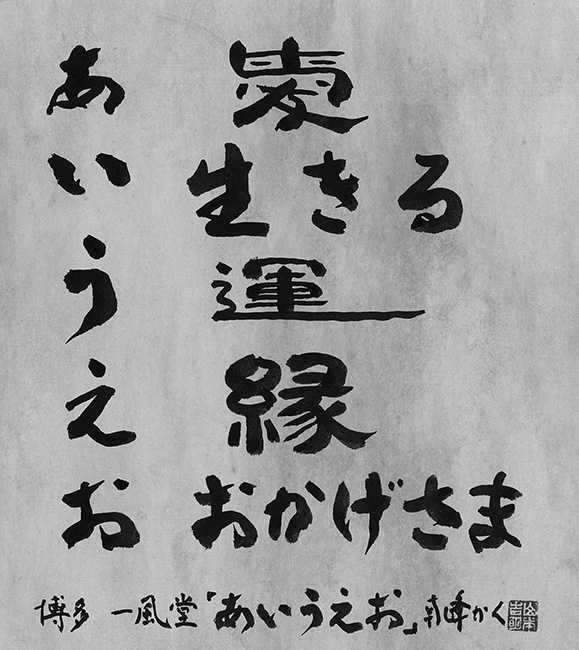 あ 愛
い 生きる
う 運
え 縁
お おかげさま
博多 一風堂「あいうえお」 峰かく